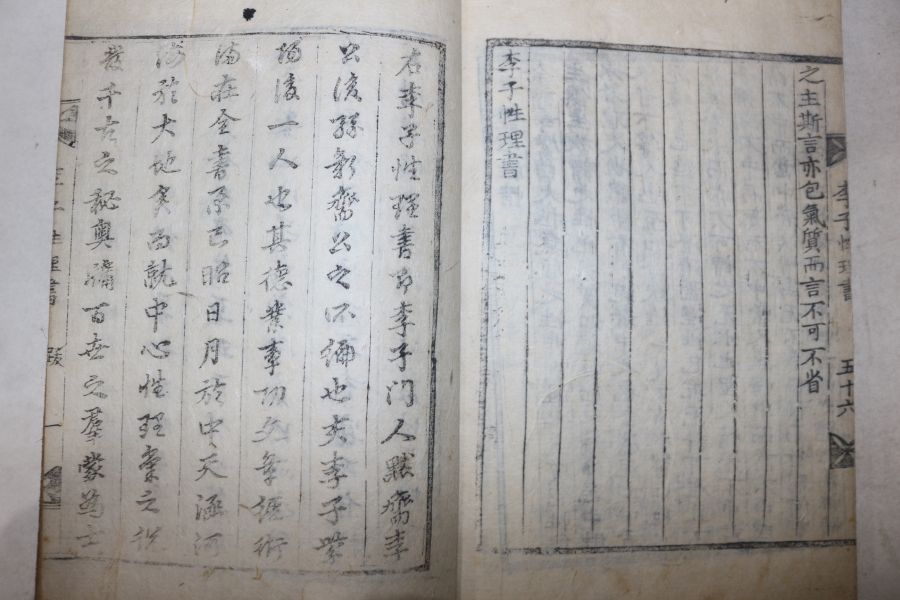 之主斯言亦包氣質而言不可不省
李子性理書
李子性理書
五十六
右李子性理書即李子門人默齋李
公後孫新齋公之所編也夫李子學
陽後一人也其德業事功文章經術
滿在全書原已昭日月於中天涵河
海於大地矣而就中心性理氣之
發千古之秘奧牖百世之羣蒙為士
李子性理書
跋
一